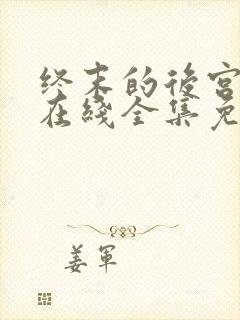 终末的后宫
在线全集免
姜军